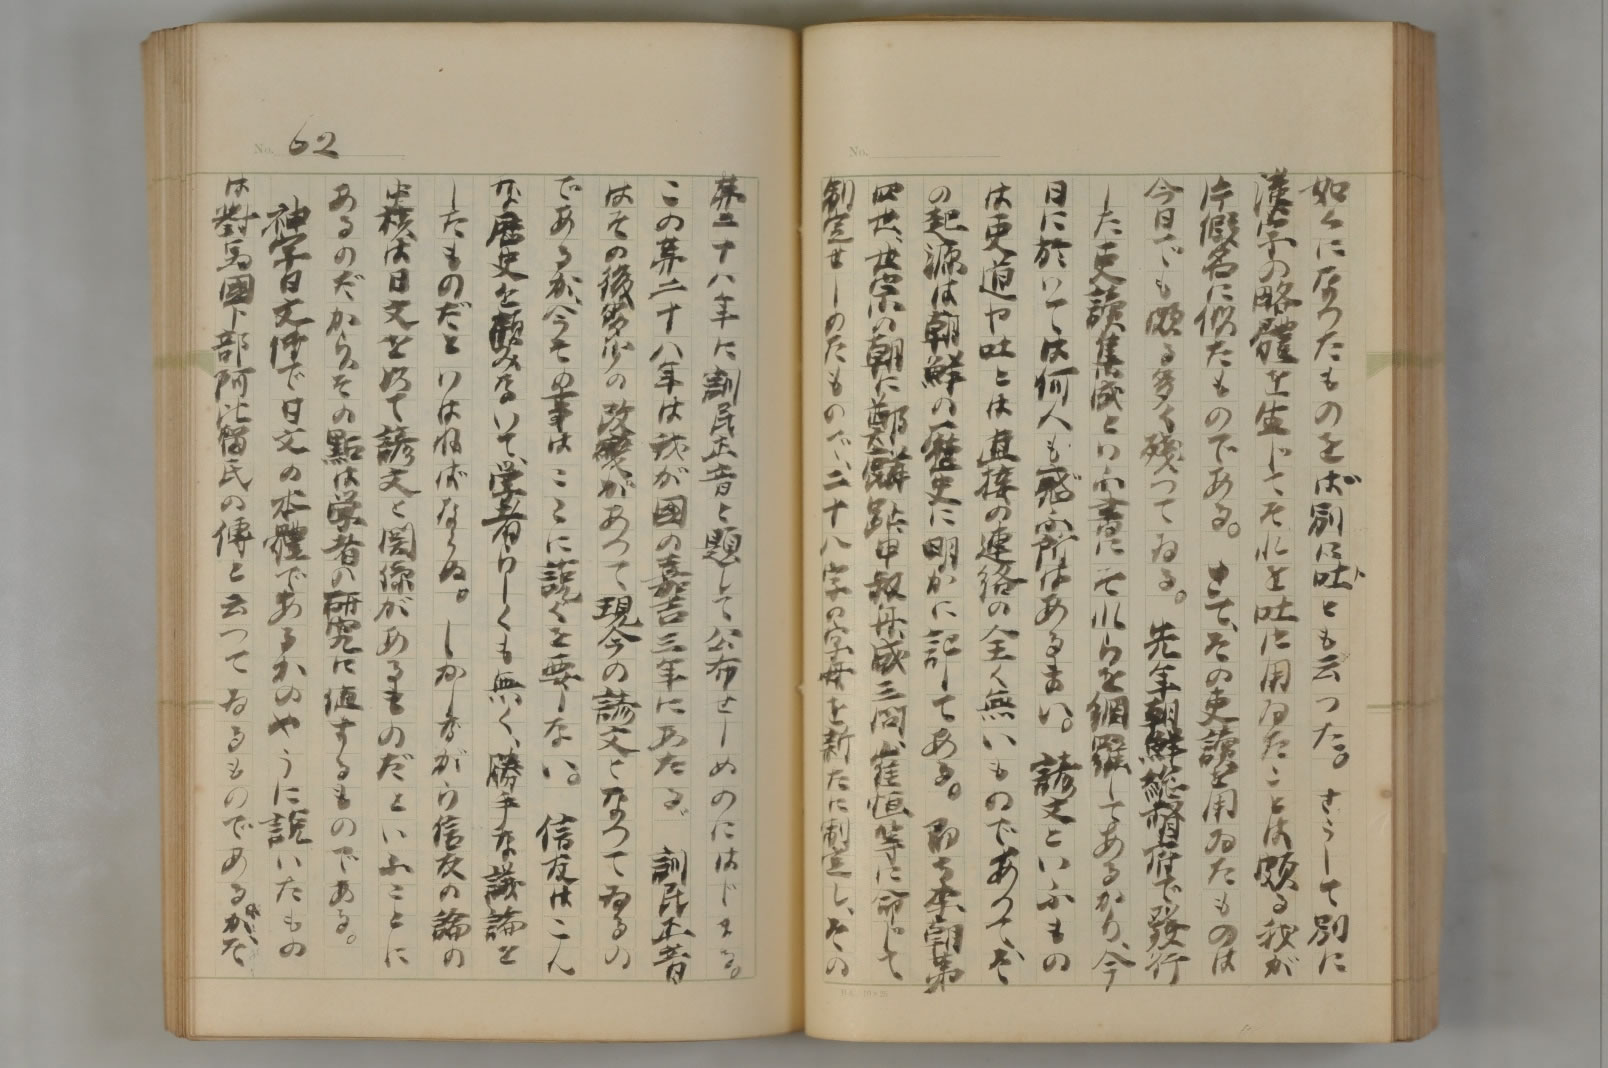 如くになつたものをば別に吐とも云つた。さうして別に
漢字の略體を生じてそれを吐に用ゐたことは頗る我が
片假名に似たものである。さて、その吏讀を用ゐたものは
今日でも頗る多く殘つてゐる。先年朝鮮総督府で發行
した吏讀集成といふ書にそれらを網羅してあるから、今
日に於いては何人も疑ふ所はあるまい。諺文といふもの
は吏道や吐とは直接の連絡の全く無いものであつて、そ
の起源は朝鮮の歴史に明かに記してある。即ち李朝第
四世、世宗の朝に鄭麟趾、申叔舟、成三問、崔恒等に命じて
制定せしめたもので、二十八字の字母を新たに制定し、その
第二十八年に訓民正音と題して公布せしめのにはじまる。
この第二十八年は我が國の嘉吉三年にあたる。訓民正音
はその後多少の改變があつて現今の諺文となつてゐるの
であるが、今その事はここに説くを要しない。信友はこん
な歴史を顧みないで、学者らしくも無く、勝手な議論を
したものだといはねばならぬ。しかしながら信友の論の
中核は日文を以て諺文と関係があるものだといふことに
あるのだから、その點は学者の研究に値するものである。
神字日文傳で日文の本體であるかのやうに説いたもの
は對馬國卜部阿比留氏の傳と云つてゐるものであるが、そ
No. 62
No.
ト